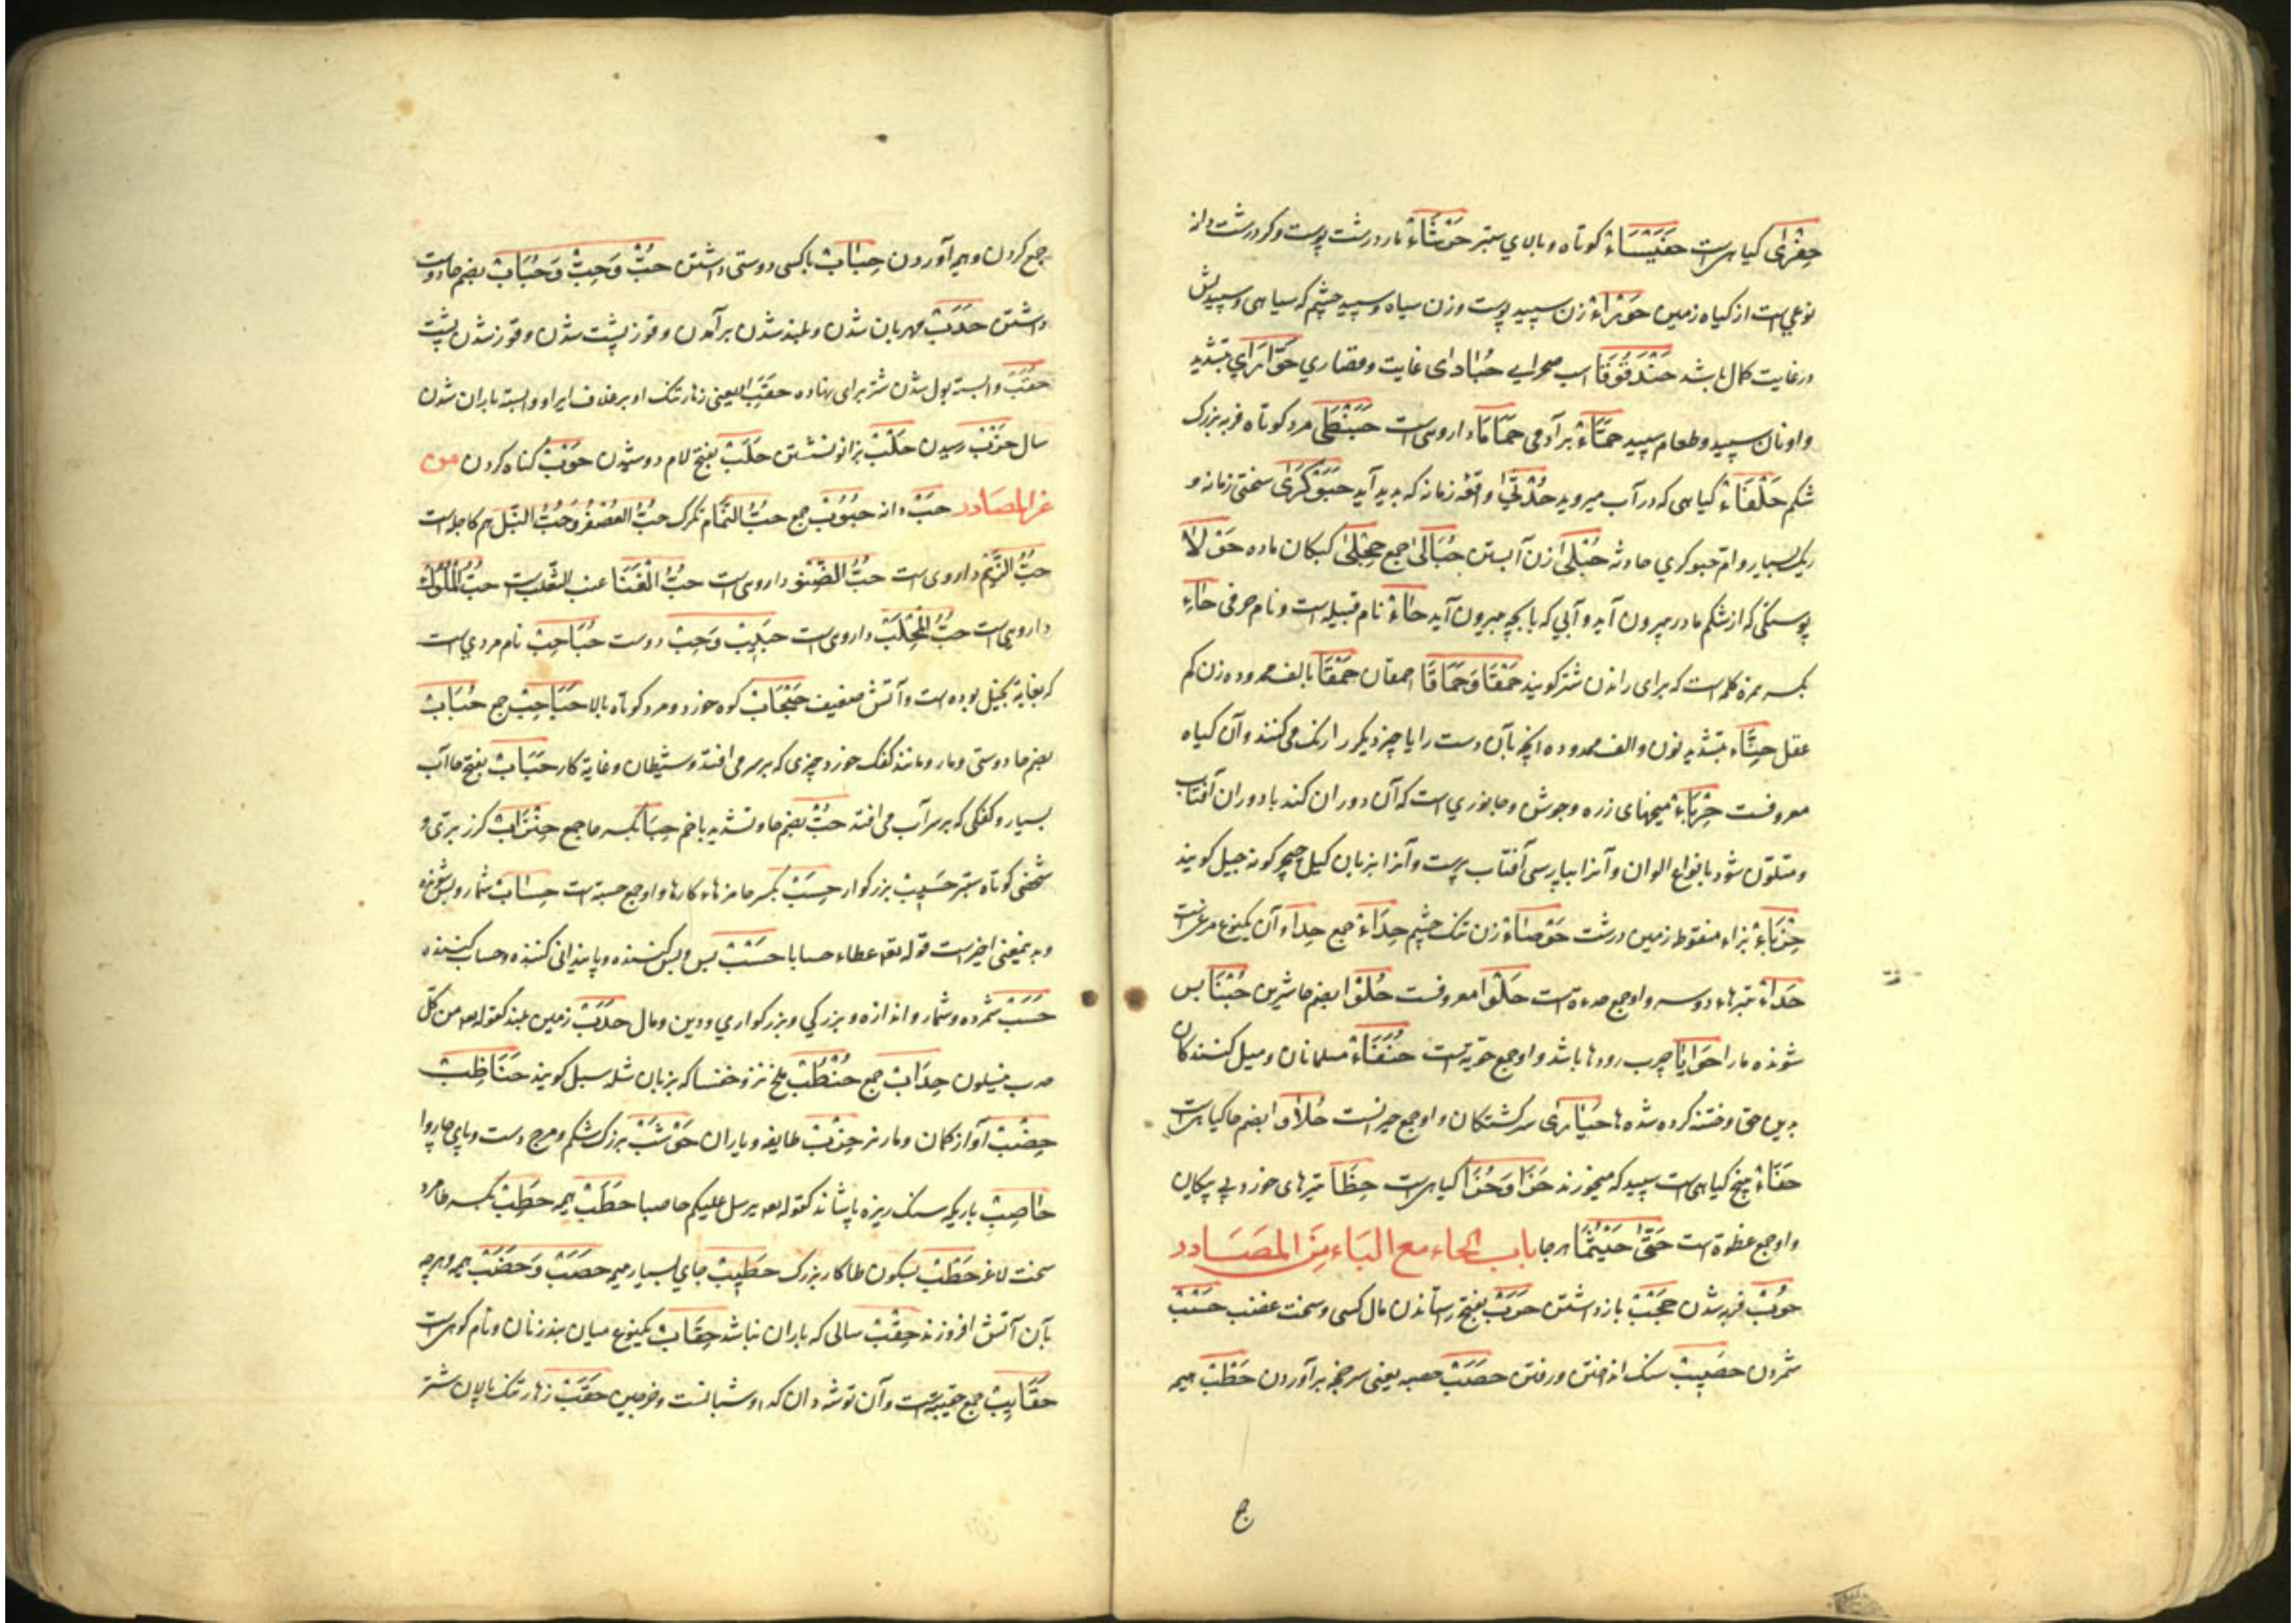 حِفْرٰی کیاهیست حَفَیْسَاءْ کوتاه و بالای ستبر حَرْشَاءْ مار درشت پوست و کرد درشت دانه
نوعی است از کیاه زمین حَوْرَاءْ زن سپید پوست و زن سیاه و سپید چشم که سیاهی و سپیدیش
در غایت کمال باشد حَنْدَقُوقَا اسب صحرایی حُبَادٰی غایت و قصاری حَوَّارَای بتشدید
واو نان سپید و طعام سپید حَمَاءْ برآدمی حَمَامَا داروی است حَبَنْطَی مرد کوتاه فربه بزرک
شکم حَلْفَاءْ کیاهی که در آب میروید حُدَیَّا واقعه زمانه که پدید آید حَبَوْکَرٰی سختی زمانه و
ریک بسیار و ام حبوکری حادثه حُبْلٰی زن آبستن حُبَالٰی جمع حِجْلٰی کبکان ماده حَوْلَا
پوستکی که از شکم مادر بیرون آید و آبی که با بچه بیرون آید حَاءْ نام قبیله است و نام حرفی حَاءِ
بکسر همزه کلمه است که برای راندن شتر کویند حَمْقَا وَحَمَاقَا احمقان حَمْقَا بالف ممدوده زن کم
عقل حِنَّاء بتشدید نون و الف ممدوده آنچه بآن دست را یا چیز دیکر را رنک می کنند و آن کیاه
معروفست حِرْبَاءْ میخهای زره و جوش و جانوری است که آن دوران کند با دوران آفتاب
و متلون شود بانواع الوان و آنرا بپارسی آفتاب پرست و آنرا بزبان کیل جیجر کونه جیل کویند
حِزْبَاءْ بزاء منقوط زمین درشت حَوْصَاءْ زن تنک چشم حِدَاءَةْ جمع حِدَاء و آن یکنوع مرغیست
حَدَاءْ تبرهاء دو سر و او جمع حدءة است حَلْوَا معروفست حُلْوَا بضم حا شیرین حُبْنَا بس
شونده مار را حَوَایَا چرب رودها باشد و او جمع حویة است حُنَفَاءْ مسلمانان و میل کنندکان
بدین حق و ختنه کرده شده ها حَیَارٰی سرکشتکان و او جمع حیرانست حُلَاوَا بضم حا کیاهیست
حَفَاءْ بیخ کیاهی است سپید که میخورند حَزَا وَحُزَا کیاهیست حِظَا تیرهای خورد بی پیکان
و او جمع حظوة است حَتّٰی حَیْثُمَا هرجا باب الحاء مع الباء مِنَ المصَادر
حُوْبْ فربه شدن حَجْبْ بازداشتن حَرَبْ بفتح را ستاندن مال کسی و سخت غضب حَسْبْ
شمردن حَصِیبْ سنک انداختن و رفتن حَصَبْ حصبه یعنی سرخجه برآوردن حَطْبْ هیمه
جمع کردن و هیمه آوردن حِبَابْ با کسی دوستی داشتن حُبْ وَحِبْ وَحُبَابْ بضم حا دوست
داشتن حَدَبْ مهربان شدن و بلند شدن برآمدن و قوز پشت شدن و قوز شدن پشت
حَقَبْ وابسته بول شدن شتر برای نهاده حَقَبْ یعنی زهار تنک او بر غلاف ایر او و ابسته باران شدن
سال حَزْبْ رسیدن حَلْبْ بزانو نشستن حَلَبْ بفتح لام دوشیدن حَوْبْ کناه کردن من
غیر المصَادر حَبْ دانه حُبُوبْ جمع حَبُّ الثُّمَام تمرک حَبُّ العُصْفُرْ وَحَبُّ النِّیل هر کاجره است
حَبُّ الزَّلَمْ داروی است حَبُّ الضَّنْو داروی است حَبُّ الْفَنَا عنب الثعلب است حَبُّ الْمُلُوکْ
داروی است حَبُّ الْمَحْلَبْ داروی است حَبِیبْ وَحِبْ دوست حُبَاحِبْ نام مردی است
که بغایة بخیل بوده است و آتش ضعیف حَبْحَابْ کوه خورد و مرد کوتاه بالا حَبَاحِبْ جمع حُبَابْ
بضم حا دوستی و مار و مانند کفک خورد چیزی که بر سر می افتد و شیطان و غایة کار حَبَابْ بفتح حا آب
بسیار و کفکی که بر سر آب می افتد حُبْ بضم حا و تشدید با خم حِبَا بکسر حا جمع حِنْزَابْ کزر بری و
شخصی کوتاه ستبر حَسِیبْ بزرکوار حِسَبْ بکسر حا مزدهاء کارها و او جمع حسبة است حِسَابْ شمار و بس شونده
و بدینمعنی اخیر است قوله تعه عطاء حسابا حَسْبْ بس و بس کننده و پایندانی کننده و حساب کننده
حَسَبْ شمرده و شمار و اندازه و بزرکی و بزرکواری و دین و مال حَدَبْ زمین بلند کقوله تعه من کل
حدب ینسلون حِدَابْ جمع حُنْظُبْ ملخ نر و خنفسا که بزبان شله سبل کویند حَنَاظِبْ
حِضْبْ آواز کمان و مار نر حِزْبْ طایفه و یاران حَوْشَبْ بزرک شکم و مرج دست و پای چاروا
حَاصِبْ باد یکه سنک ریزه پاشاند کقوله تعه یرسل علیکم حاصبا حَطَبْ هیمه حَطِبْ بکسر طا مرد
سخت لاغر حَطْبْ بسکون طا کار بزرک حَطِیبْ جای بسیار هیمه حَصَبْ وَحَضَبْ هیمه و هرچه
بآن آتش افروزند حِقْبْ سالی که باران نباشد حِقَابْ یکنوع میان بند زنان و نام کوهیست
حَقَایِبْ جمع حقیبة است و آن توشه دان که او شبانست و خرجین حَقَبْ زهار تنک پالان شتر
ج